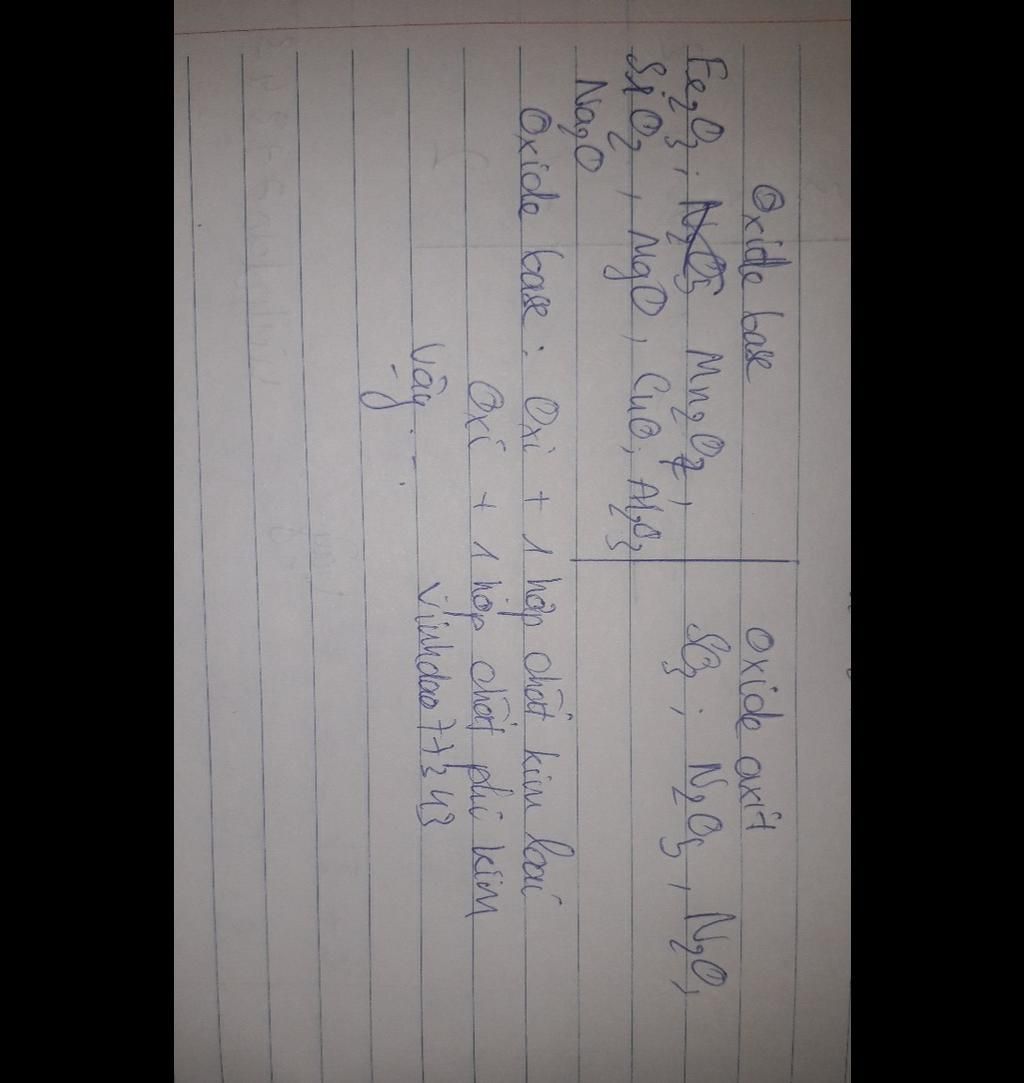 Oxide base
Oxide axit
Fe₂O₃, Mn₂O₇,
SO₃, N₂O₅, N₂O,
SiO₂, MgO, CuO, Al₂O₃
Na₂O
Oxide base: Oxi + 1 hợp chất kim loại
Oxi + 1 hợp chất phi kim
Vậy... vinhdao77243